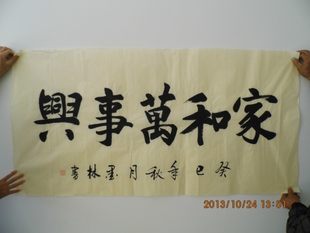 家和萬事興
癸巳年秋月墨林書
2013/10/24 13:51